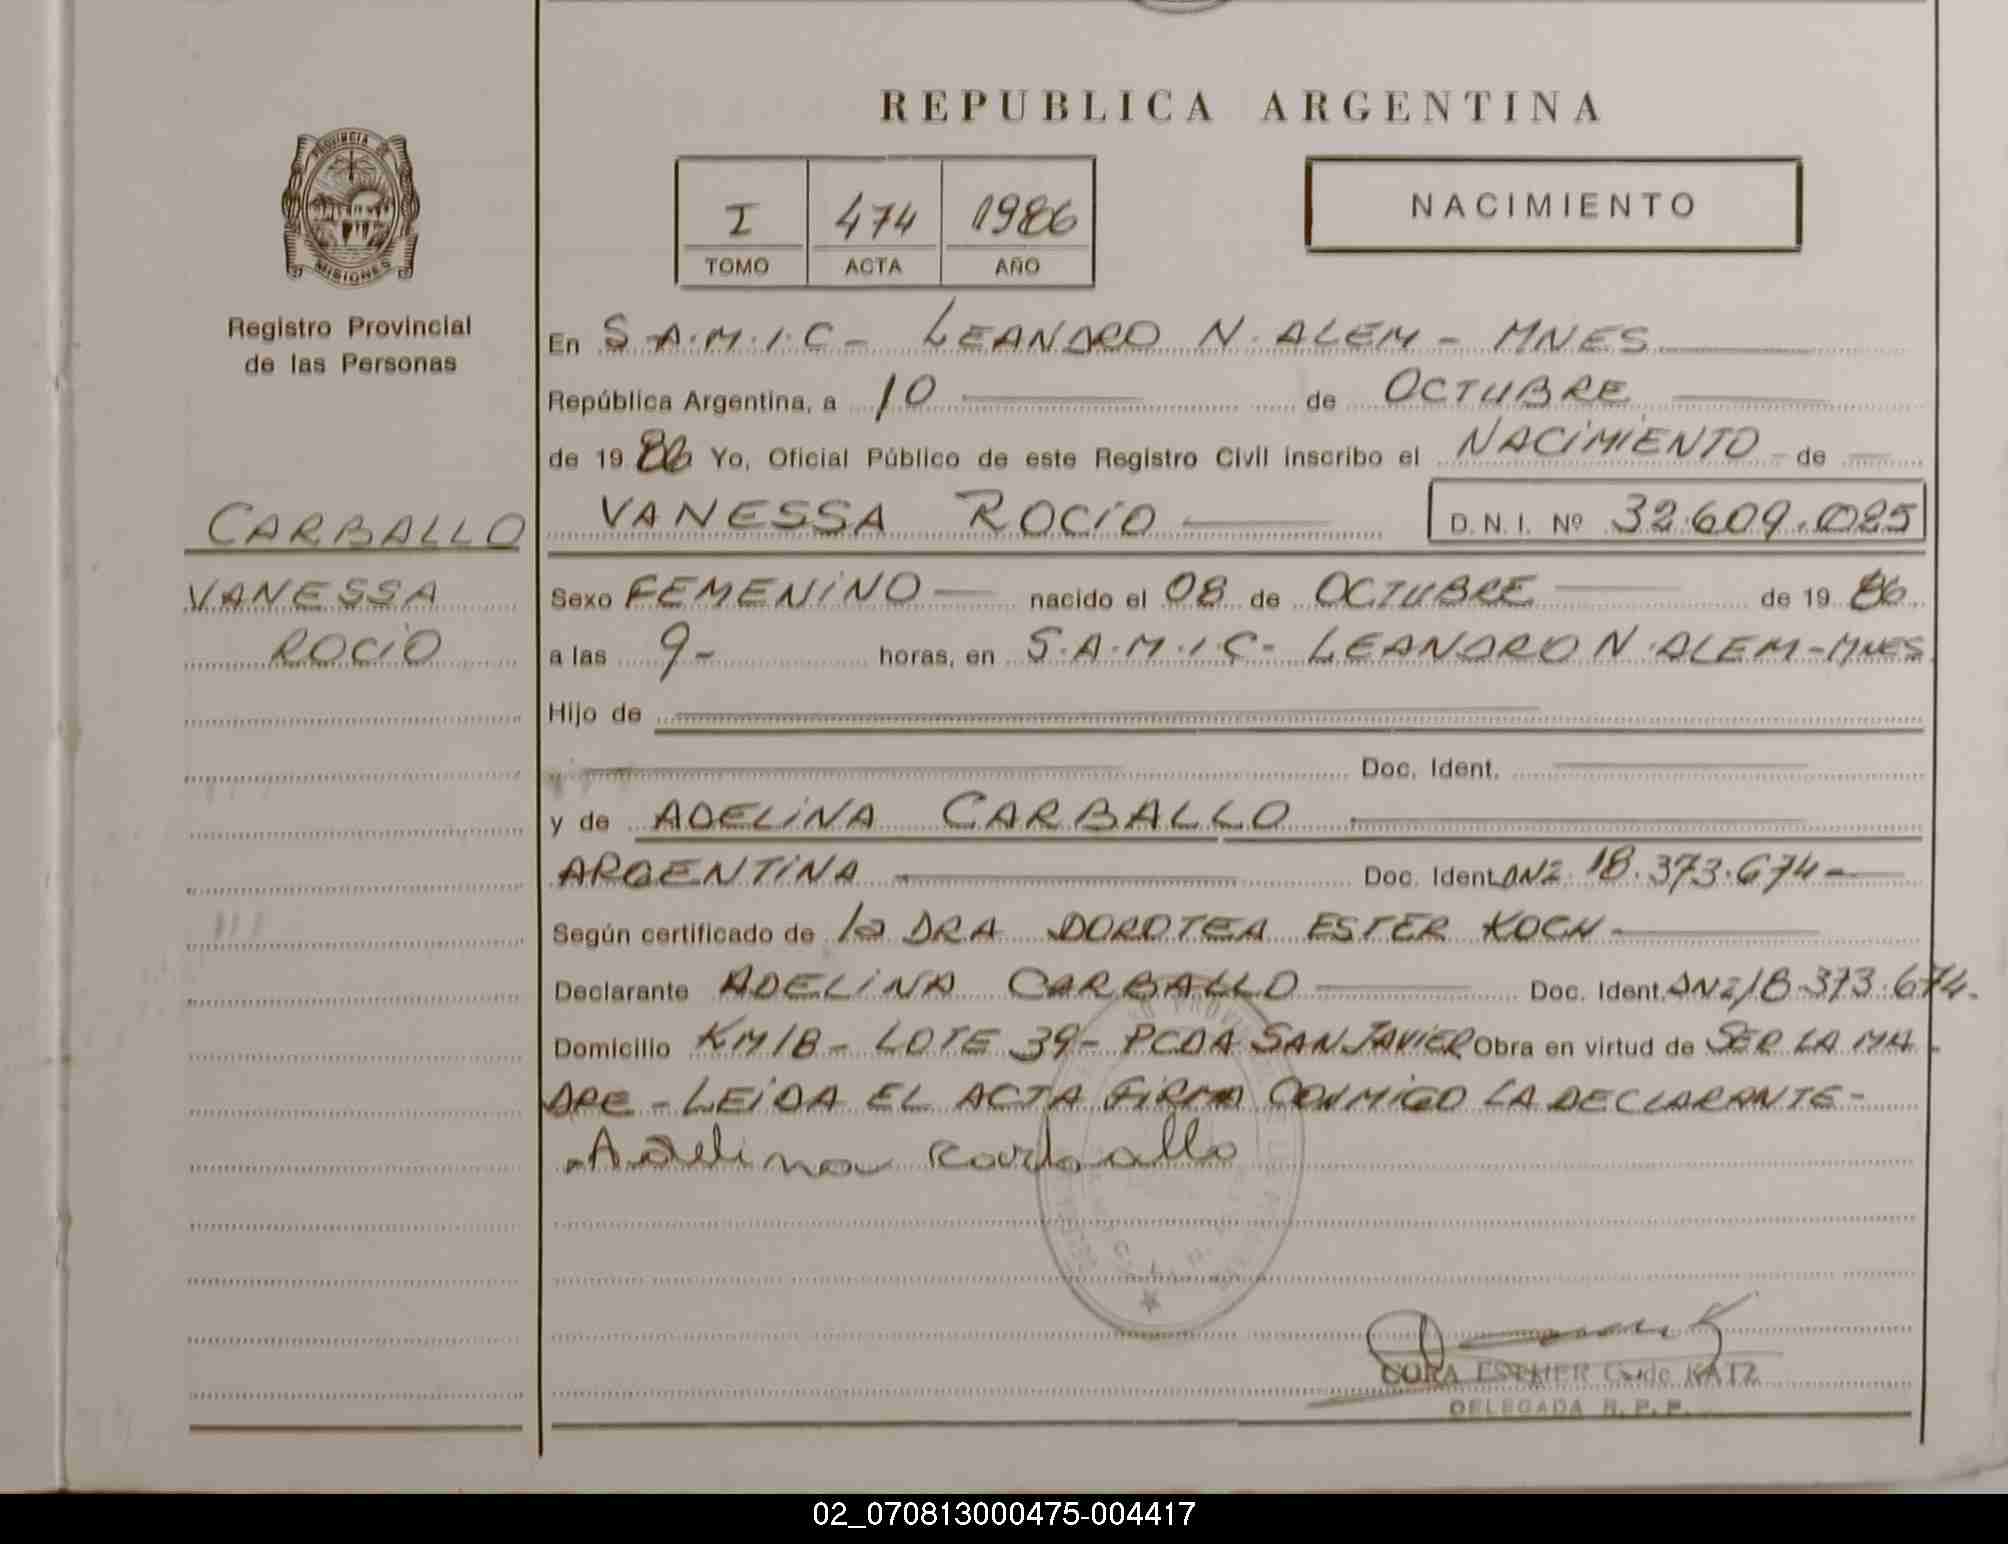 REPUBLICA ARGENTINA
PROVINCIA DE
MISIONES
I 474 1986
TOMO ACTA AÑO
NACIMIENTO
Registro Provincial
de las Personas
En S.A.M.I.C- LEANDRO N. ALEM - MNES
República Argentina, a 10 de OCTUBRE
de 1986 Yo, Oficial Público de este Registro Civil inscribo el NACIMIENTO - de
CARBALLO
VANESSA ROCIO D. N. I. Nº 32.609.025
VANESSA
ROCIO
Sexo FEMENINO nacido el 08 de OCTUBRE de 1986
a las 9- horas, en S.A.M.I.C- LEANDRO N. ALEM-MNES
Hijo de
Doc. Ident.
y de ADELINA CARBALLO
ARGENTINA Doc. Ident. DNI 18.373.674-
Según certificado de la DRA DOROTEA ESTER KOCH-
Declarante ADELINA CARBALLO Doc. Ident. DNI 18.373.674.
Domicilio KM18- LOTE 39- PCDA SAN JAVIER Obra en virtud de SER LA MA
DRE - LEIDA EL ACTA FIRMA CONMIGO LA DECLARANTE-
Adelina carballo
CORA ESTHER G. de KATZ
DELEGADA R. P. P.
02_070813000475-004417